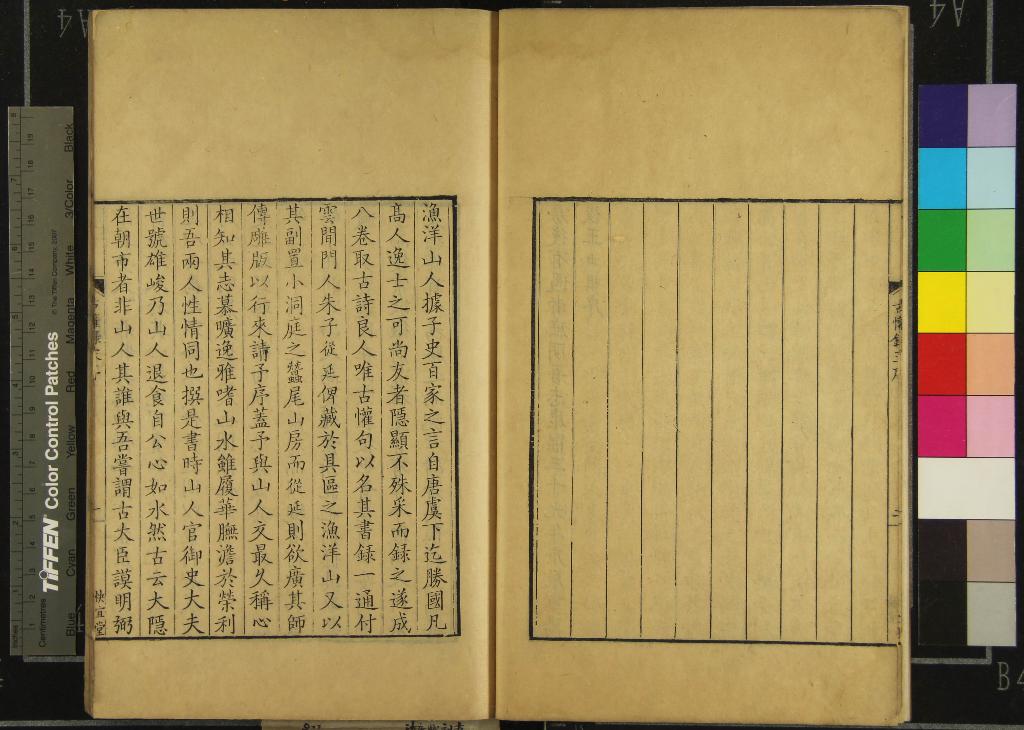 漁洋山人據子史百家之言自唐虞下迄勝國凡
高人逸士之可尚友者隱顯不殊采而録之遂成
八卷取古詩良人唯古懽句以名其書録一通付
雲間門人朱子從延俾藏於具區之漁洋山又以
其副置小洞庭之蠶尾山房而從延則欲廣其師
傳雕版以行來請予序蓋予與山人交最久稱心
相知其志慕曠逸雅嗜山水雖履華膴澹於榮利
則吾兩人性情同也撰是書時山人官御史大夫
世號雄峻乃山人退食自公心如水然古云大隱
在朝市者非山人其誰與吾嘗謂古大臣謨明弼
快宜堂
TIFFEN Color Control Patches
© The Tiffen Company, 2007
Centimetres
Inches
Blue
Cyan
Green
Yellow
Red
Magenta
White
3/Color
Black
A4
A4
B4